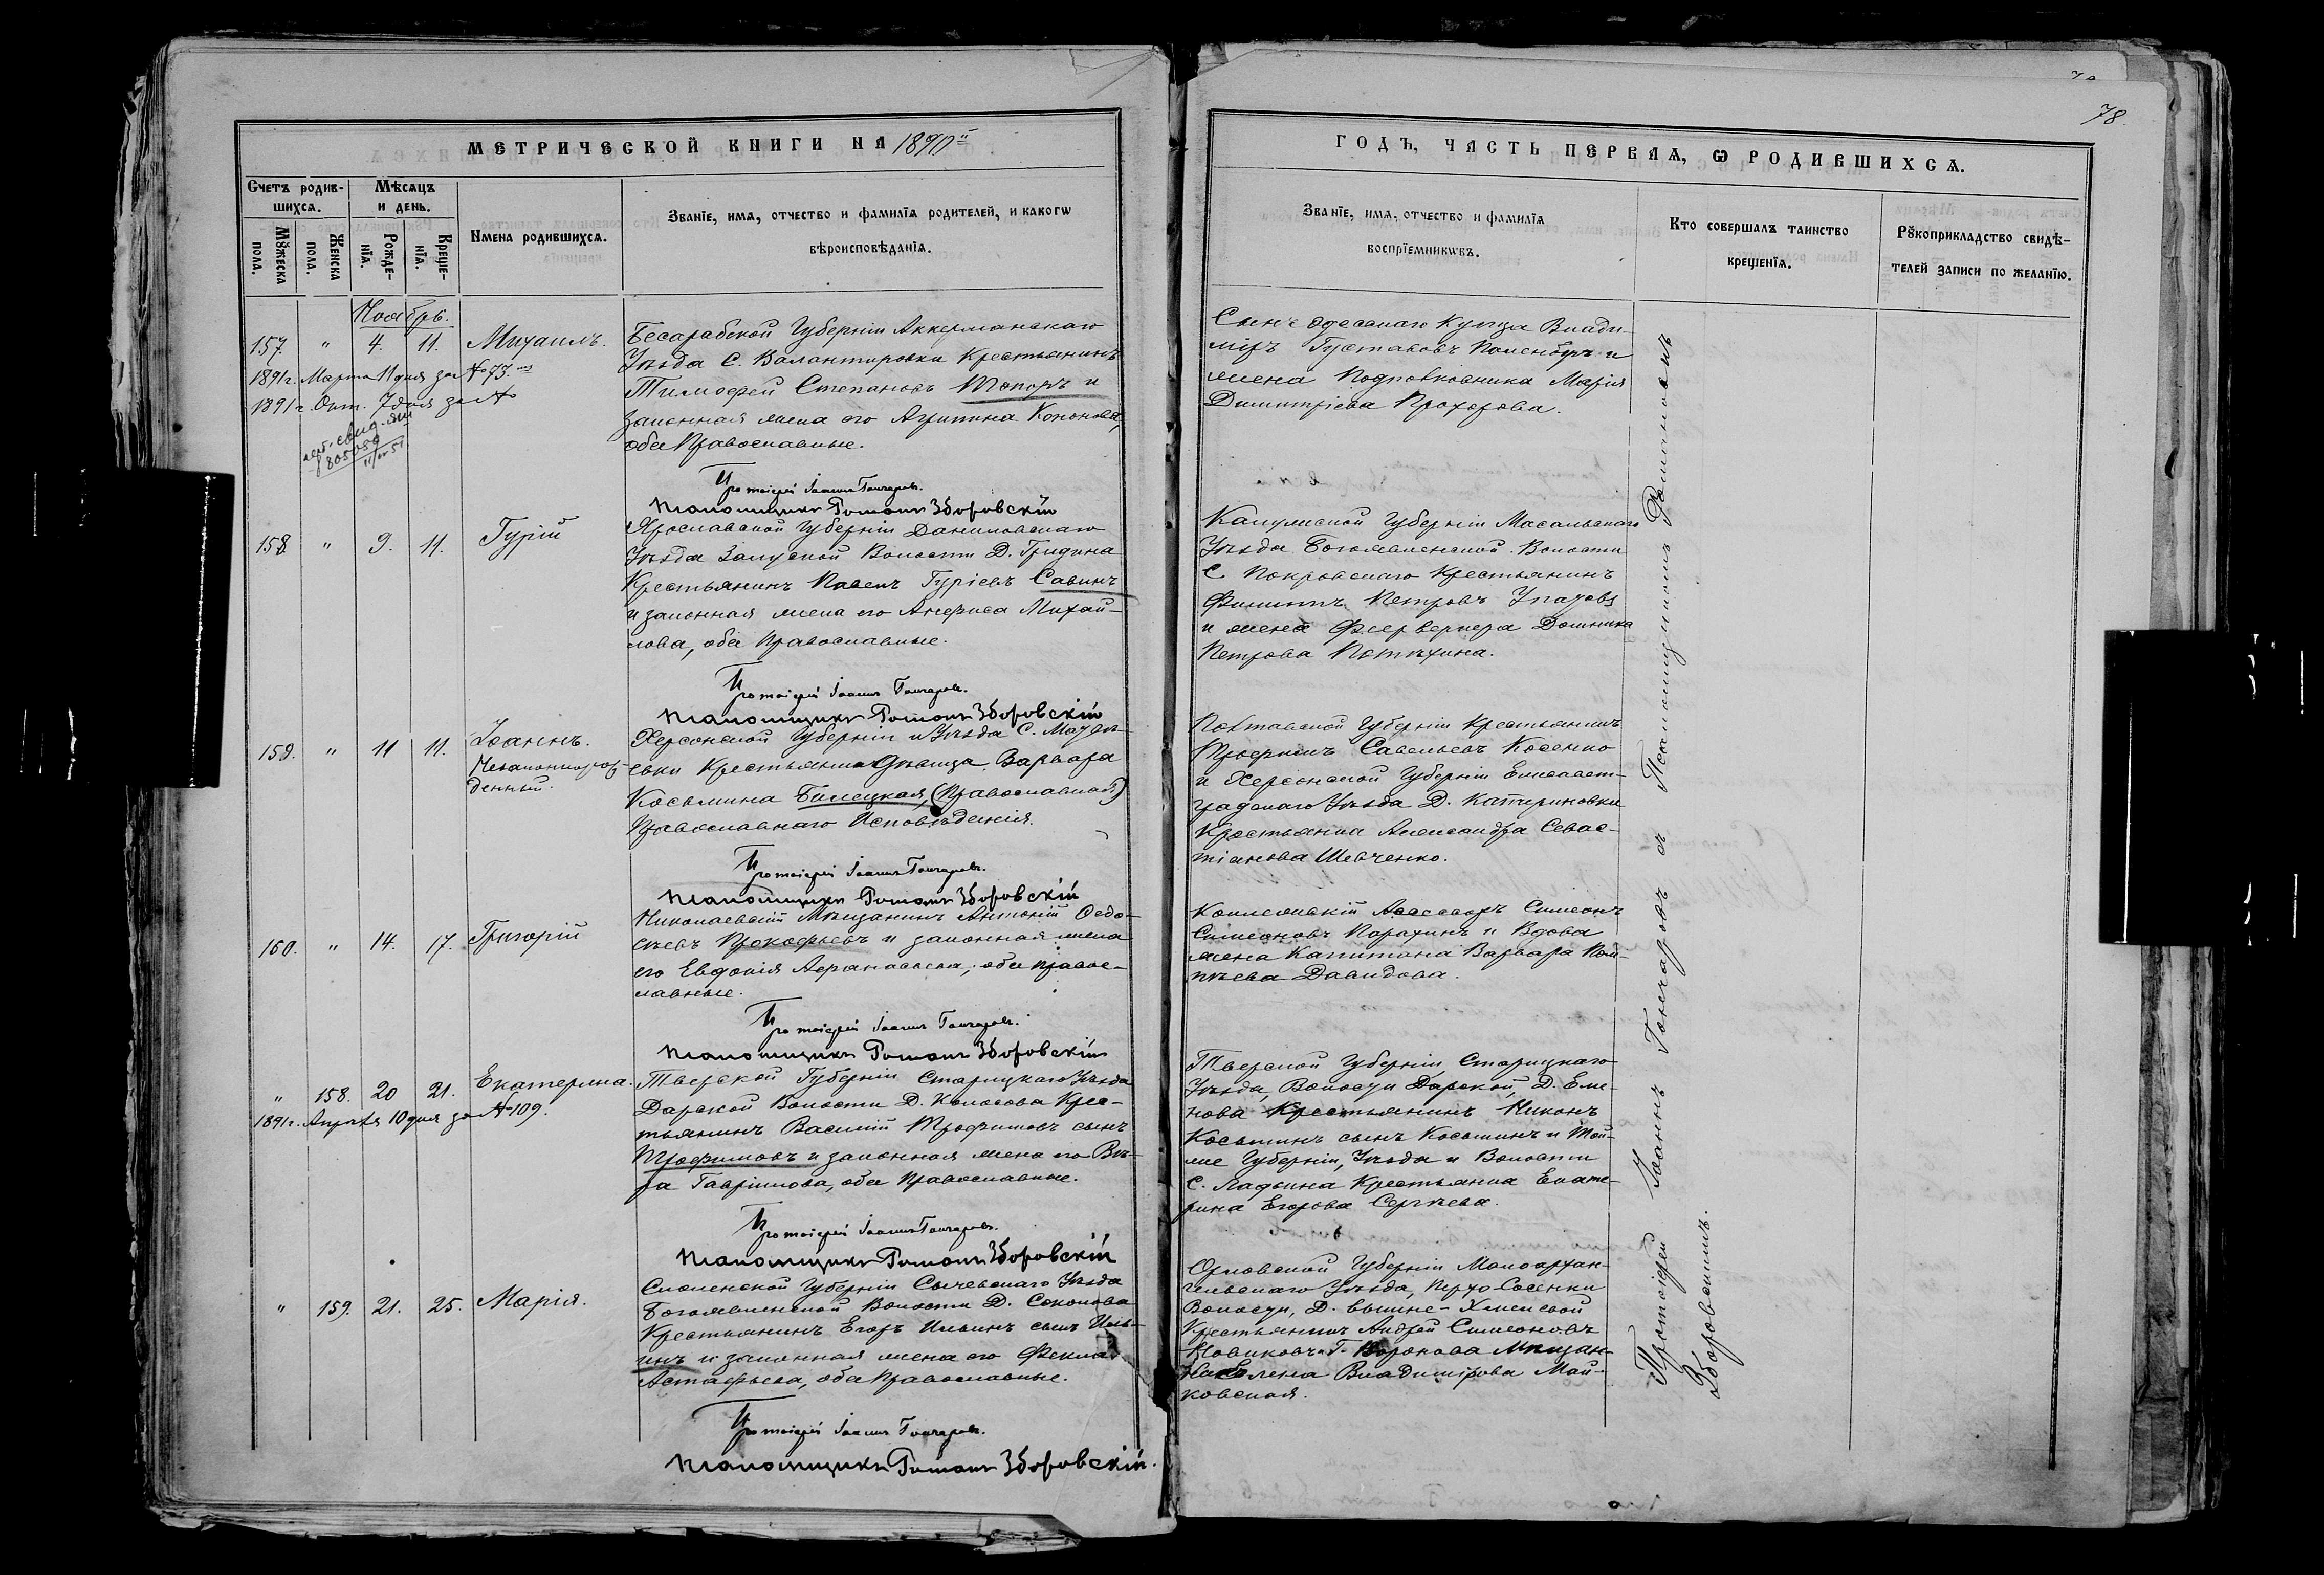 78.
МЕТРИЧЕСКОЙ КНИГИ НА 1890й
ГОДЪ, ЧАСТЬ ПЕРВАЯ, Ѡ РОДИВШИХСЯ.
Счетъ родив-
шихся.
Мѣсяцъ
и день.
Мꙋжеска
пола.
Женска
пола.
Рожде-
нїя.
Креще-
нїя.
Имена родившихся.
Званїе, имя, отчество и фамилїя родителей, и какогѡ
вѣроисповѣданїя.
Званїе, имя, отчество и фамилїя
воспрїемникѡвъ.
Кто совершалъ таинство
крещенїя.
Рꙋкоприкладство свидѣ-
телей записи по желанїю.
Ноябрь.
157. " 4. 11. Михаилъ.
1891г. Марта 11 дня за № 73.
1891г. Окт. 7 дня за №
Бесарабской Губерніи Аккерманскаго
Уѣзда С. Валантировки Крестьянинъ
Тимофей Степановъ Топоръ и
законная жена его Агрипина Кононова,
оба Православные.
Протоіерей Іоаннъ Гончаровъ.
Псаломщикъ Романъ Зборовскій
Сынъ Одесскаго Купца Влади-
міръ Густавовъ и
жена Подполковника Марія
Димитріева Прохорова.
158. " 9. 11. Гурій
Ярославской Губерніи Даниловскаго
Уѣзда Залуской Волости Д. Гридина
Крестьянинъ Павелъ Гуріевъ Савинъ
и законная жена его Анфиса Михай-
лова, оба Православные.
Протоіерей Іоаннъ Гончаровъ.
Псаломщикъ Романъ Зборовскій
Калужской Губерніи Масальскаго
Уѣзда Богоявленской Волости
С. Покровскаго Крестьянинъ
Филиппъ Петровъ
и жена Феерверкера Домника
Петрова Потѣхина.
159. " 11 11. Іоаннъ.
Незаконнорож-
денный.
Херсонской Губерніи и Уѣзда С.
Крестьянка Дѣвица Варвара
Косьмина Билецкая, (Православная)
Православнаго Исповѣданія.
Протоіерей Іоаннъ Гончаровъ.
Псаломщикъ Романъ Зборовскій
Полтавской Губерніи Крестьянинъ
Трофимъ Савельевъ Косенко
и Херсонской Губерніи Елисавет-
градскаго Уѣзда Д. Катериновки
Крестьянка Александра Севас-
тіанова Шевченко.
160. " 14. 17. Григорій
Николаевскій Мѣщанинъ Антоній Ѳедо-
сѣевъ Прокофьевъ и законная жена
его Евдокія Аѳанасьева, оба правос-
лавные.
Протоіерей Іоаннъ Гончаровъ.
Псаломщикъ Романъ Зборовскій
Коллежскій Асессоръ Симеонъ
Симеоновъ Парахинъ и Вдова
жена Капитана Варвара Пом-
пѣева Давидова.
" 158. 20 21. Екатерина.
1891г. Апрѣля 10 дня за № 109.
Тверской Губерніи Старицкаго Уѣзда
Дарской Волости Д. Колосова Крес-
тьянинъ Василій Трофимовъ сынъ
Трофимовъ и законная жена его Вѣ-
ра Гавріилова, оба Православные.
Протоіерей Іоаннъ Гончаровъ.
Псаломщикъ Романъ Зборовскій
Тверской Губерніи, Старицкаго
Уѣзда, Волости Дарской, Д. Еме-
нова Крестьянинъ Никонъ
Косьминъ сынъ Косьминъ и Той-
же Губерніи, Уѣзда и Волости
С. Ладьина Крестьянка Екате-
рина Егорова Сергѣева.
" 159. 21. 25. Марія.
Смоленской Губерніи Сычевскаго Уѣзда
Богоявленской Волости Д. Соколова
Крестьянинъ Егоръ Ильинъ сынъ Иль-
инъ и законная жена его Фекла
Астафьева, оба Православные.
Протоіерей Іоаннъ Гончаровъ.
Псаломщикъ Романъ Зборовскій.
Орловской Губерніи Малоархан-
гельскаго Уѣзда, Верхо-Сосенки
Волости, Д. Вышне-
Крестьянинъ Андрей Симеоновъ
Новиковъ и Г. Мѣщан-
ка Елена Владимірова Май-
ковская.
Протоіерей Іоаннъ Гончаровъ съ Псаломщикомъ Романомъ
Зборовскимъ.